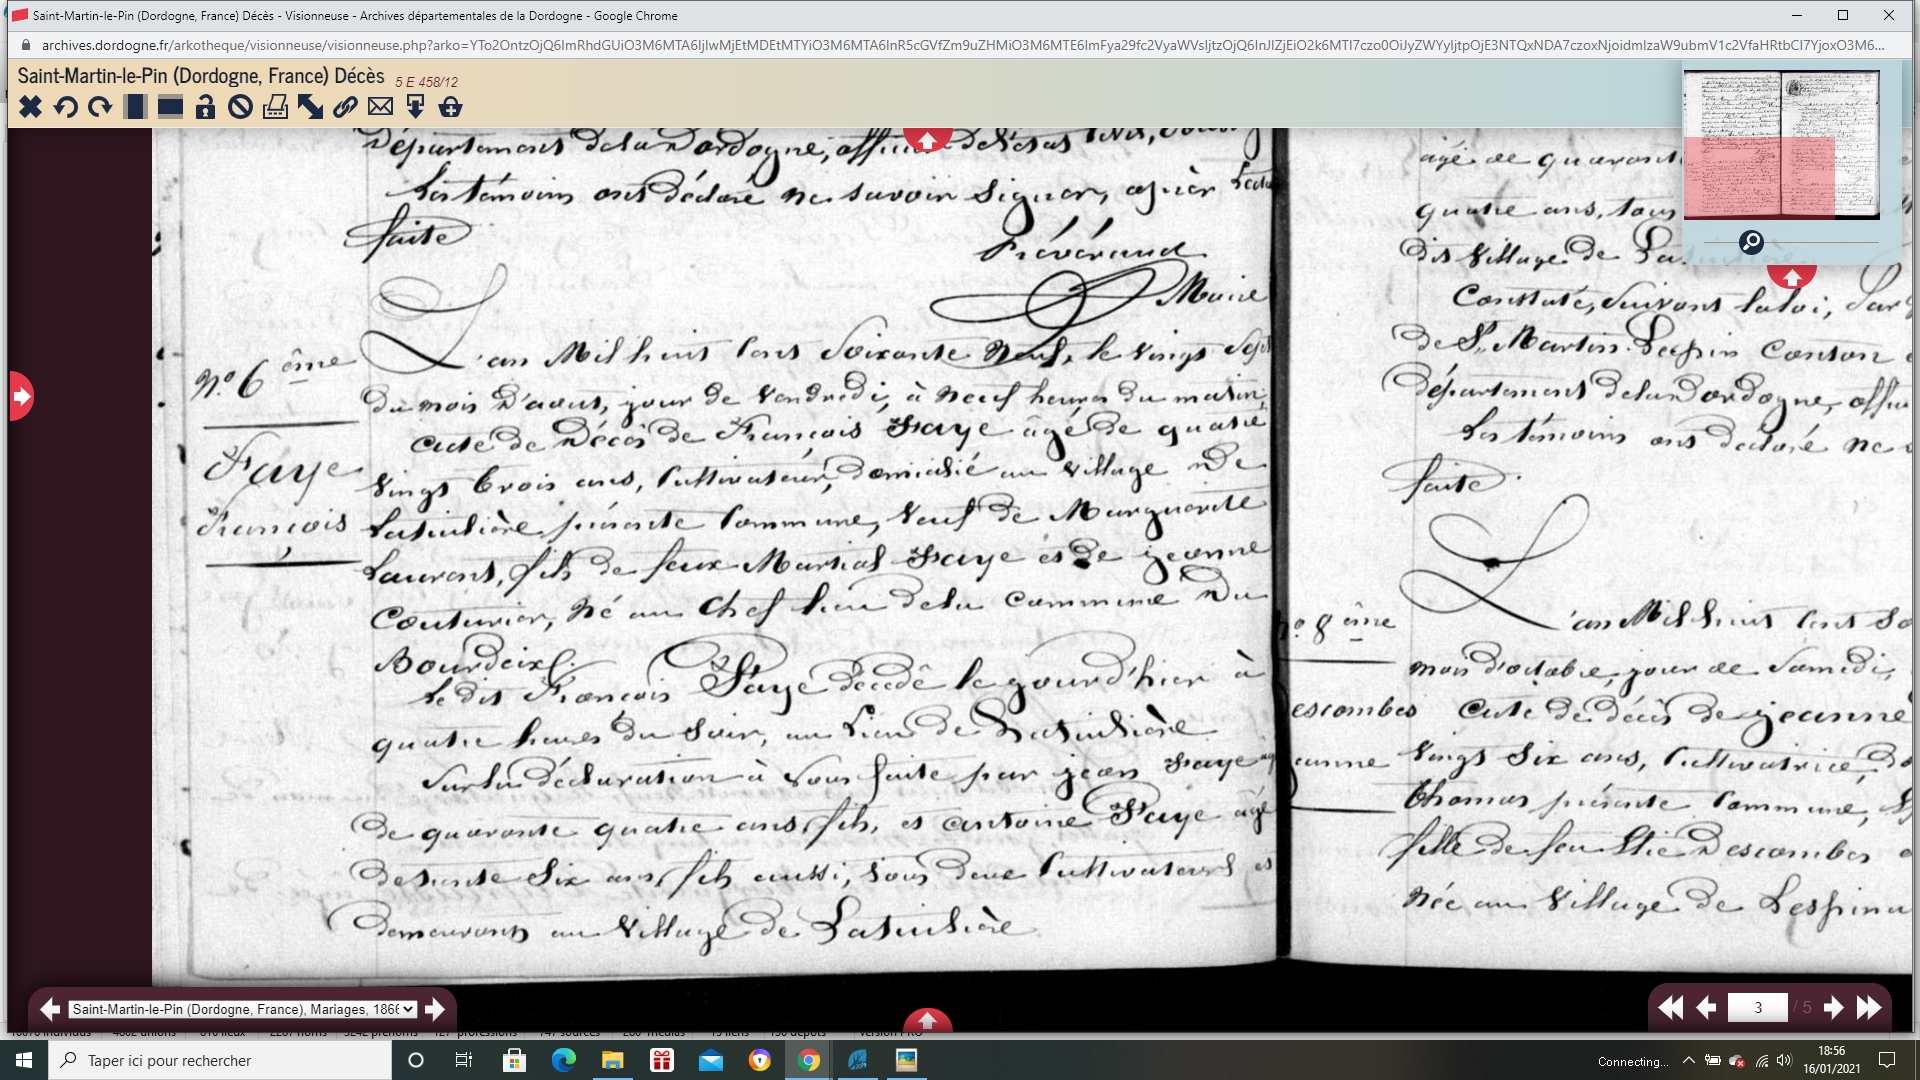 Saint-Martin-le-Pin (Dordogne, France) Décès - Visionneuse - Archives départementales de la Dordogne - Google Chrome
archives.dordogne.fr/arkotheque/visionneuse/visionneuse.php?arko=
Saint-Martin-le-Pin (Dordogne, France) Décès 5 E 458/12
Département de la Dordogne, officier de l'état
Les témoins ont déclaré ne savoir signer, après
faite
Prévéraud
Maire
N.º 6 ème
Faye
François
L'an Mil huit Cent Soixante Neuf, le vingt Sept
du mois D'aout, jour de Vendredi, à Neuf heures du matin,
acte de Décès de François Faye âgé de quatre
vingt trois ans, Cultivateur, domicilié au village De
présente Commune, Veuf de Marguerite
Laurent, fils de feux Martial Faye et de jeanne
Couturier, Né au Chef lieu de la Commune Du
Bourdeix.
Le dit François Faye décédé le jourd'hier à
quatre heures du Soir, au Lieu de
Sur la déclaration à Nous faite par jean Faye
de quarante quatre ans, fils, et antoine Faye âgé
de trente Six ans, fils aussi, tous deux Cultivateurs et
demeurant au Village de
âgé de quarante
quatre ans, tous
dit Village de
Constaté, Suivant la loi, Par
de St Martin Lepin Canton
Département de la Dordogne, offi
Les témoins ont déclaré ne
faite.
nº 8 ème
escombes
eanne
L'an Mil huit Cent So
mois d'octobre, jour de Samedi,
acte de décès de jeanne
vingt Six ans, Cultivatrice, Do
thomas présente Commune,
fille de feu Elie Descombes
Née au Village de
Saint-Martin-le-Pin (Dordogne, France), Mariages, 186
3 / 5
Taper ici pour rechercher
Connecting...
18:56
16/01/2021